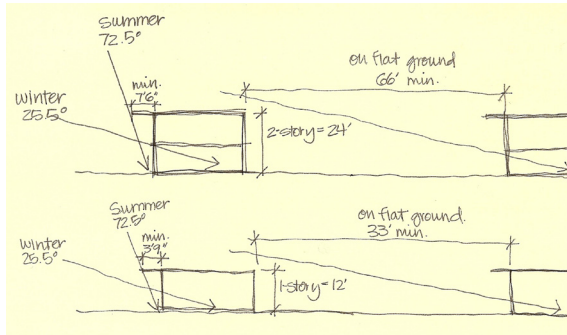 Summer
72.5°
on flat ground
66' min.
min.
7'6"
Winter
25.5°
2-story=24'
Summer
72.5°
on flat ground.
33' min.
min.
3'9"
Winter
25.5°
1-story=12'